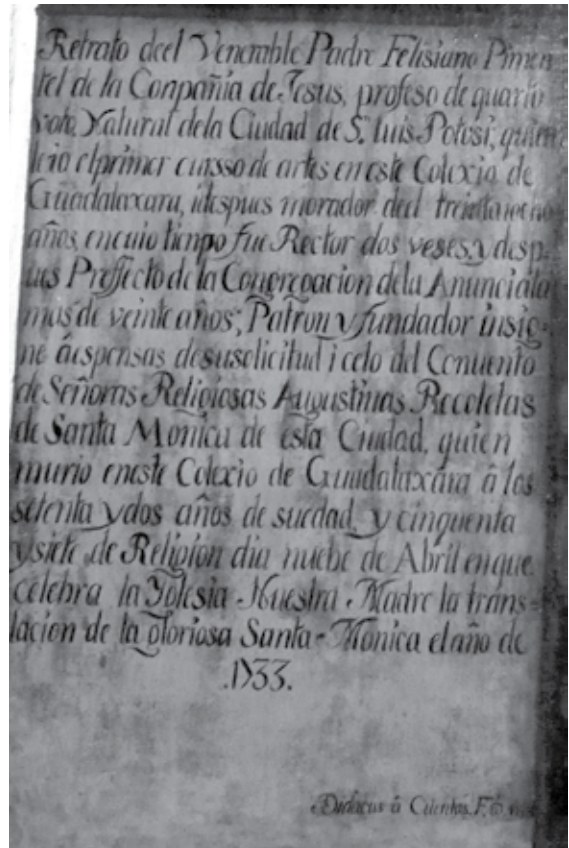 Retrato deel Venerable Padre Felisiano Pimen
tel de la Conpañia de Jesus, profeso de quarto
voto, Natural dela Ciudad de S. Luis Potosi, quien
leio elprimer cursso de artes en este Colexio de
Guadalaxara, idespues morador deel treinta
años, encuio tienpo fue Rector dos veses, y desp-
ues Prffecto de la Congregacion dela Anunciata
mas de veinte años; Patron y fundador insig-
ne aespensas desusolicitud i celo del Conuento
de Señoras Religiosas Augustinas Recoletas
de Santa Monica de esta Ciudad, quien
murio eneste Colexio de Guadalaxara â los
setenta ydos años de suedad, y cinquenta
ysiete de Religion dia nuebe de Abril enque
celebra la Yglesia Nuestra Madre la trans=
lacion de la gloriosa Santa Monica elaño de
.1733.
Didacus â Cuentas. F.